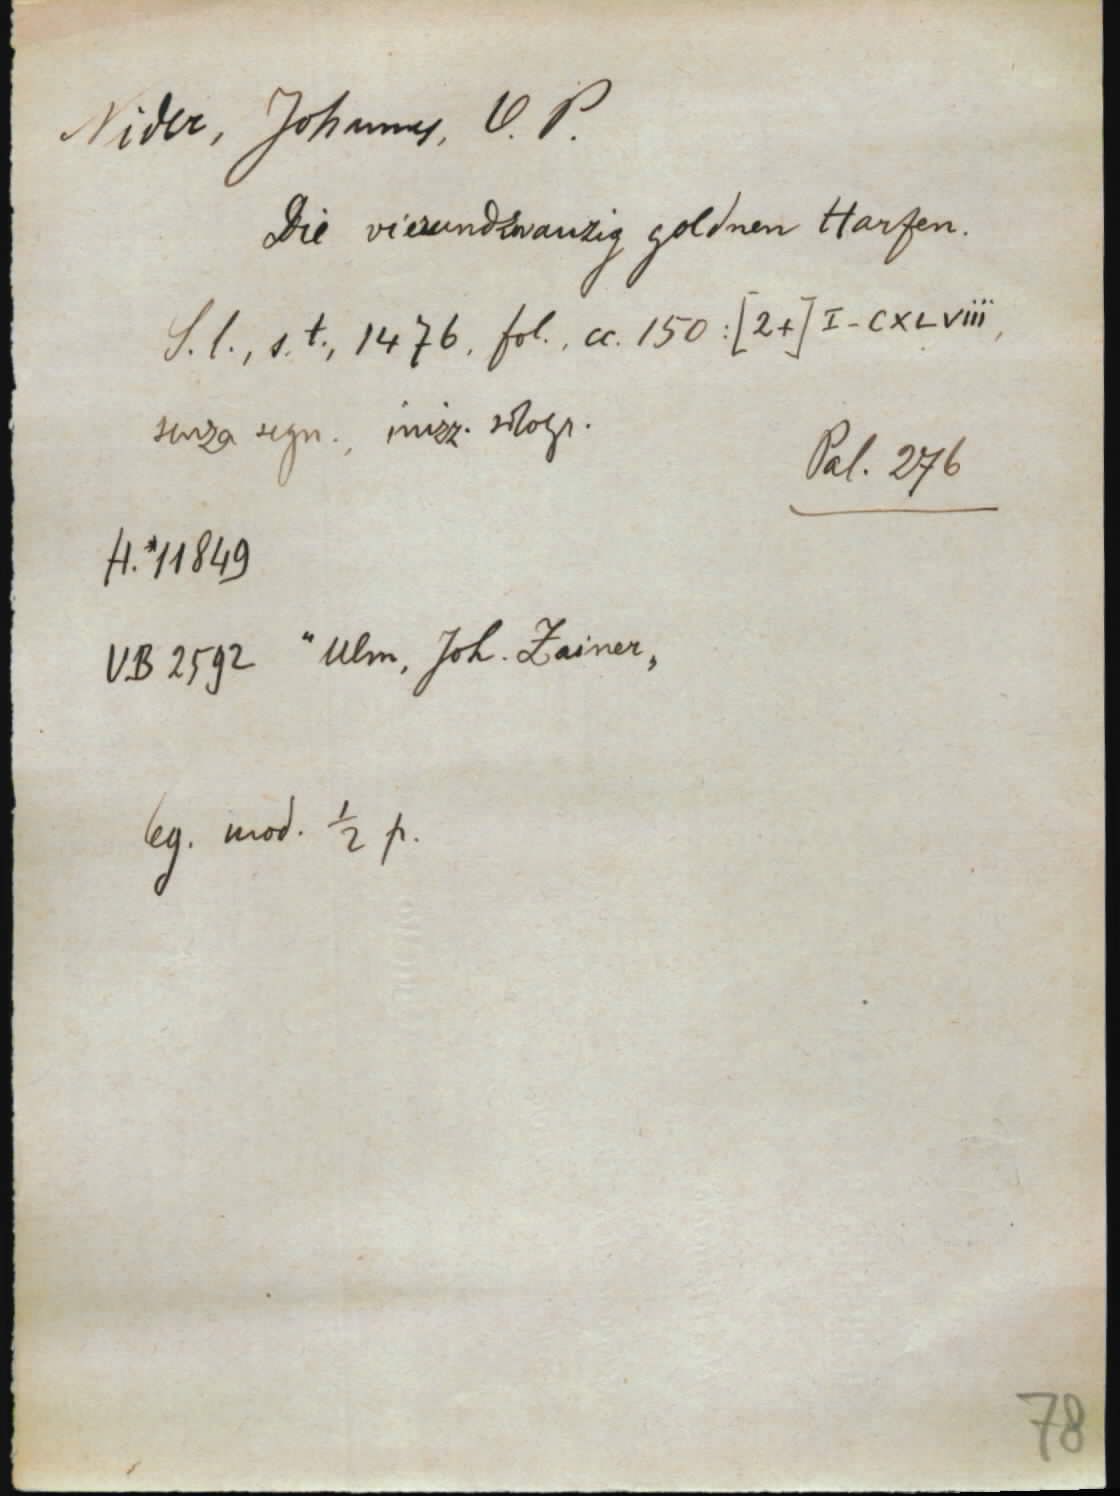 Nider, Johannes, O. P.
Die vierundzwanzig goldnen Harfen.
S. l., s. t., 1476, fol., cc. 150 : [2+] I - CXLviii,
senza segn., inizz. silogr.
Pal. 276
H. *11849
VB 2592 "Ulm, Joh. Zainer„
leg. mod. 1/2 p.
78